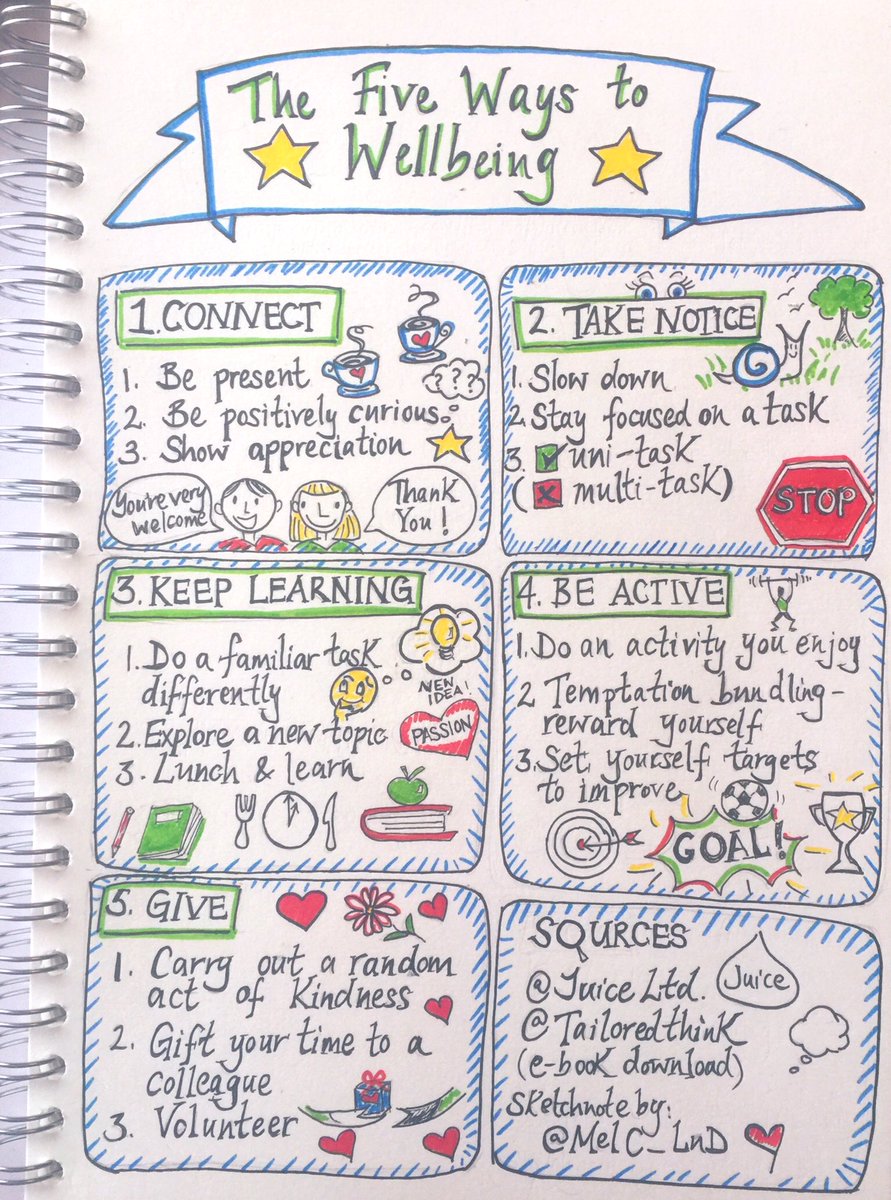 The Five Ways to
Wellbeing
1. CONNECT
1. Be present
2. Be positively curious.
3. Show appreciation
???
You're very
welcome
Thank
You!
2. TAKE NOTICE
1. Slow down
2. Stay focused on a task
3. uni-task
( multi-task)
STOP
3. KEEP LEARNING
1. Do a familiar task
differently
2. Explore a new topic
3. Lunch & learn
NEW
IDEA!
PASSION
4. BE ACTIVE
1. Do an activity you enjoy
2 Temptation bundling-
reward yourself
3. Set yourself targets
to improve
GOAL!
5. GIVE
1. Carry out a random
act of Kindness
2. Gift your time to a
colleague
3. Volunteer
SOURCES
@Juice Ltd.
Juice
@Tailoredthink
(e-book download)
Sketchnote by:
@Mel C_LnD